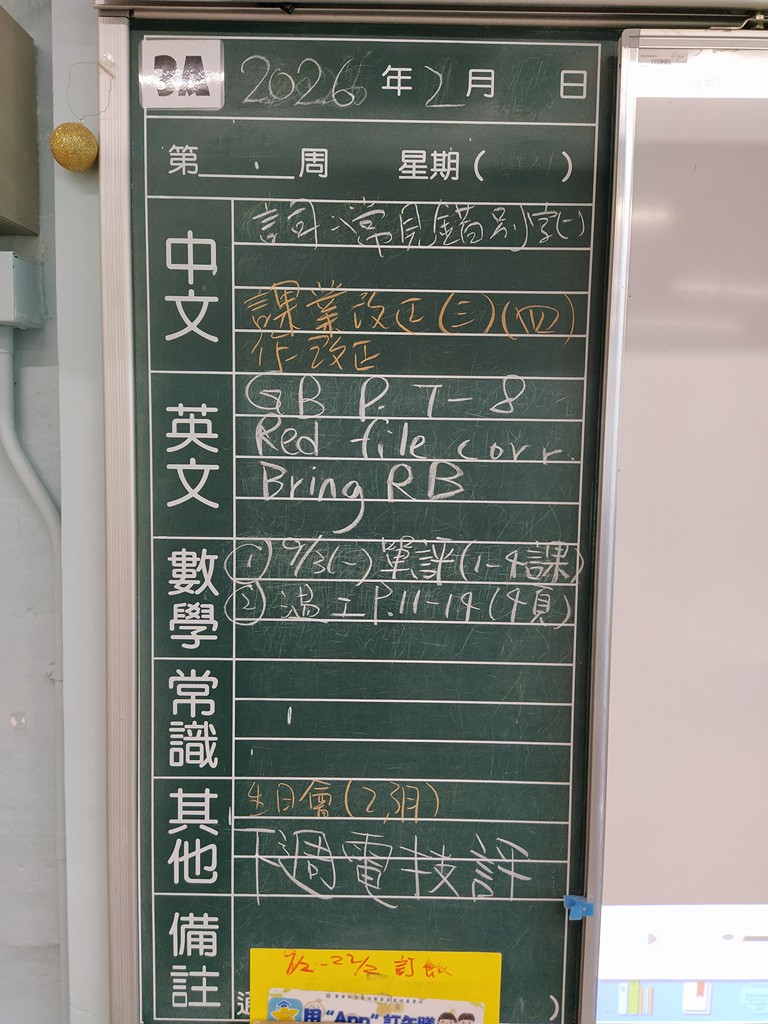 3A 2026 年 2 月 日
第 周 星期( )
中文
詞:常見錯別字(一)
課業改正(三)(四)
作改正
英文
GB P. 7-8
Red file corr.
Bring RB
數學
① 9/3(一)單評(1-4課)
② 溫工P.11-14(4頁)
常識
其他
生日會(2,3月)
下週電技評
備註
訂飯
用“App”訂午膳